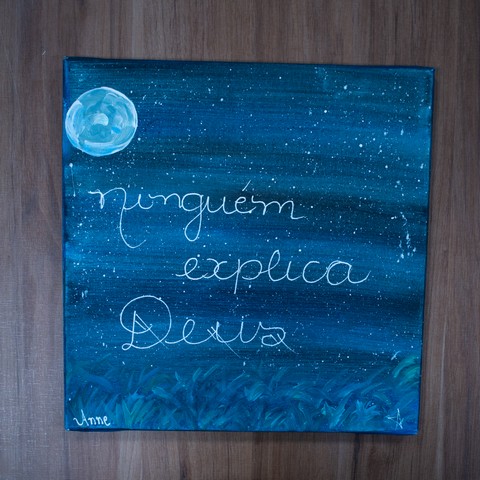 ninguém
explica
Deus
Anne